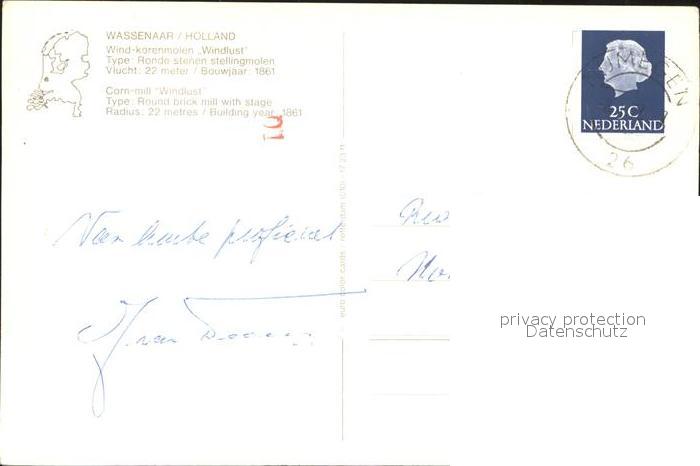 WASSENAAR / HOLLAND
Wind-korenmolen „Windlust"
Type: Ronde stenen stellingmolen
Vlucht: 22 meter / Bouwjaar: 1861
Corn-mill "Windlust"
Type: Round brick mill with stage
Radius: 22 metres / Building year 1861
25 C
NEDERLAND
26
Van harte proficiat
euro color cards
privacy protection
Datenschutz